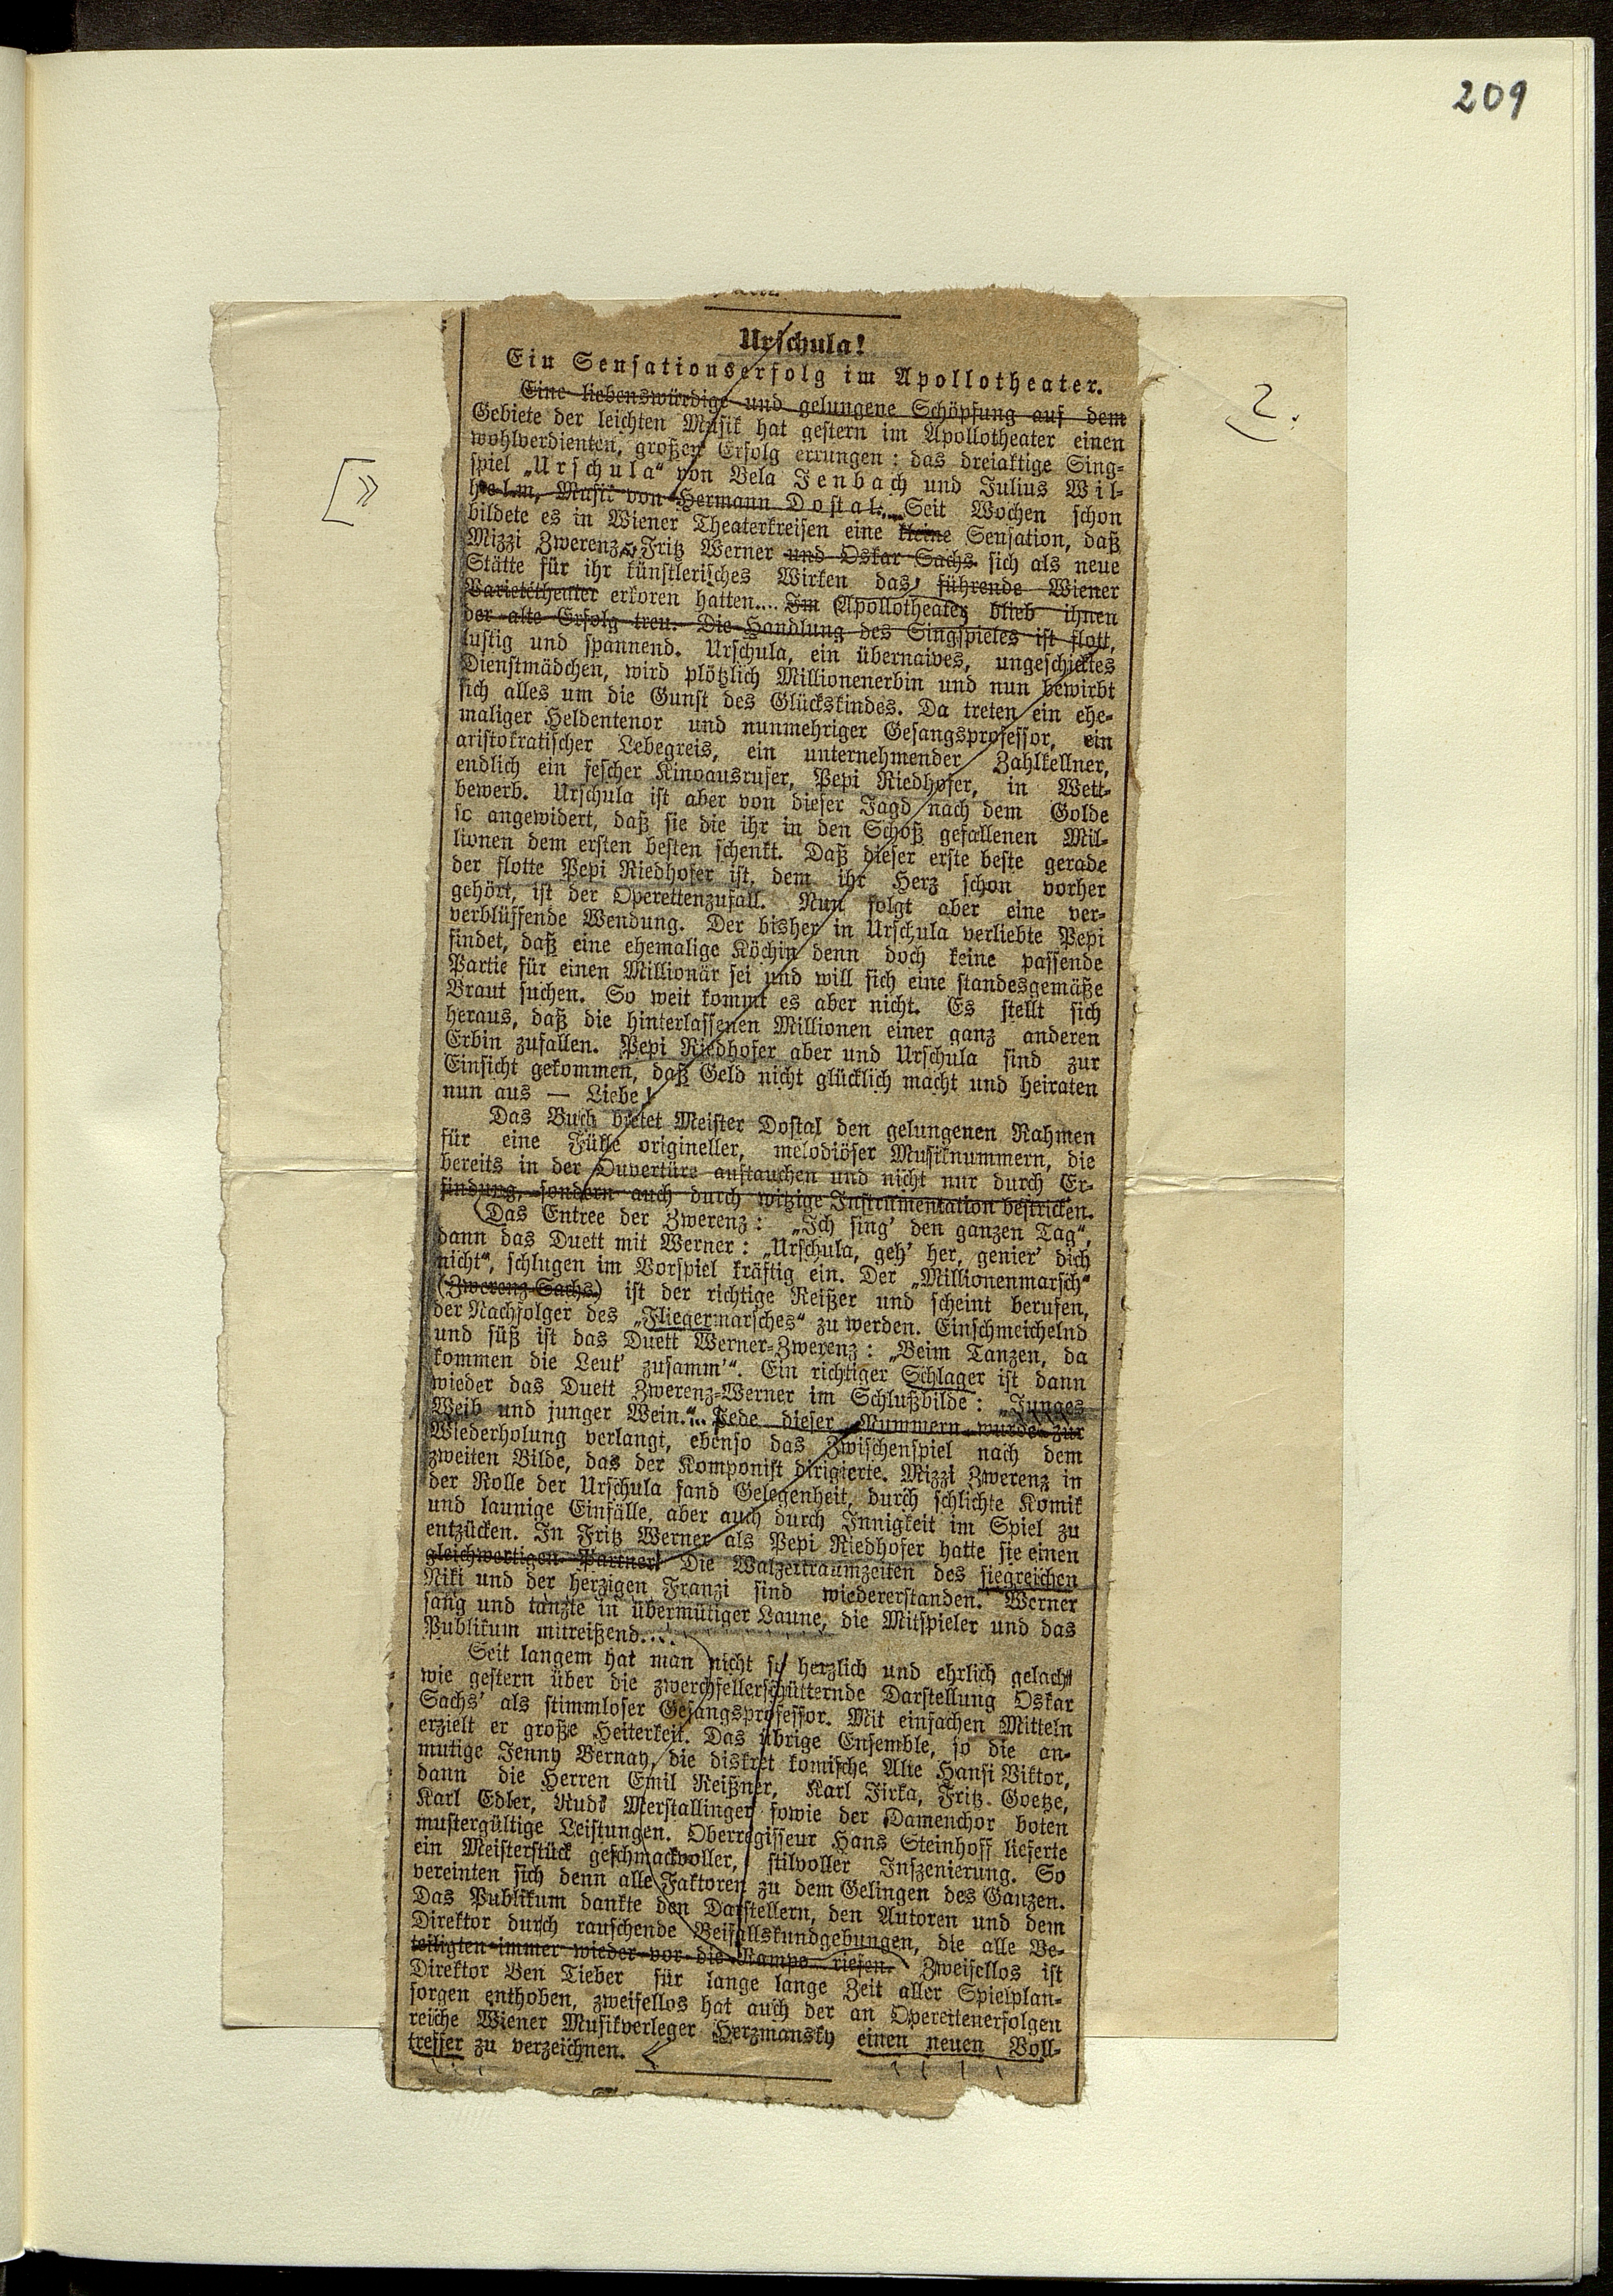 209
2.
[»
Urschula!
Ein Sensationserfolg im Apollotheater.
Eine liebenswürdige und gelungene Schöpfung auf dem
Gebiete der leichten Musik hat gestern im Apollotheater einen
wohlverdienten, großen Erfolg errungen: das dreiaktige Sing-
spiel „Urschula“ von Bela Jenbach und Julius Wil-
helm, Musik von Hermann Dostal. Seit Wochen schon
bildete es in Wiener Theaterkreisen eine kleine Sensation, daß
Mizzi Zwerenz, Fritz Werner und Oskar Sachs sich als neue
Stätte für ihr künstlerisches Wirken das führende Wiener
Varietétheater erkoren hatten.... Im Apollotheater blieb ihnen
der alte Erfolg treu. Die Handlung des Singspieles ist flott,
lustig und spannend. Urschula, ein übernaives, ungeschicktes
Dienstmädchen, wird plötzlich Millionenerbin und nun bewirbt
sich alles um die Gunst des Glückskindes. Da treten ein ehe-
maliger Heldentenor und nunmehriger Gesangsprofessor, ein
aristokratischer Lebegreis, ein unternehmender Zahlkellner,
endlich ein fescher Kinoausrufer, Pepi Riedhofer, in Wett-
bewerb. Urschula ist aber von dieser Jagd nach dem Golde
so angewidert, daß sie die ihr in den Schoß gefallenen Mil-
lionen dem ersten besten schenkt. Daß dieser erste beste gerade
der flotte Pepi Riedhofer ist, dem ihr Herz schon vorher
gehört, ist der Operettenzufall. Nun folgt aber eine ver-
verblüffende Wendung. Der bisher in Urschula verliebte Pepi
findet, daß eine ehemalige Köchin denn doch keine passende
Partie für einen Millionär sei und will sich eine standesgemäße
Braut suchen. So weit kommt es aber nicht. Es stellt sich
heraus, daß die hinterlassenen Millionen einer ganz anderen
Erbin zufallen. Pepi Riedhofer aber und Urschula sind zur
Einsicht gekommen, daß Geld nicht glücklich macht und heiraten
nun aus — Liebe!
Das Buch bietet Meister Dostal den gelungenen Rahmen
für eine Fülle origineller, melodiöser Musiknummern, die
bereits in der Ouvertüre auftauchen und nicht nur durch Er-
findung, sondern auch durch witzige Instrumentation bestricken.
Das Entree der Zwerenz: „Ich sing' den ganzen Tag“,
dann das Duett mit Werner: „Urschula, geh' her, genier' dich
nicht“, schlugen im Vorspiel kräftig ein. Der „Millionenmarsch“
(Zwerenz-Sachs) ist der richtige Reißer und scheint berufen,
der Nachfolger des „Fliegermarsches“ zu werden. Einschmeichelnd
und süß ist das Duett Werner-Zwerenz: „Beim Tanzen, da
kommen die Leut' zusamm'“. Ein richtiger Schlager ist dann
wieder das Duett Zwerenz-Werner im Schlußbilde: „Junges
Weib und junger Wein.“ Jede dieser Nummern wurde zur
Wiederholung verlangt, ebenso das Zwischenspiel nach dem
zweiten Bilde, das der Komponist dirigierte. Mizzi Zwerenz in
der Rolle der Urschula fand Gelegenheit, durch schlichte Komik
und launige Einfälle, aber auch durch Innigkeit im Spiel zu
entzücken. In Fritz Werner als Pepi Riedhofer hatte sie einen
gleichwertigen Partner! Die Walzertraumzeiten des siegreichen
Niki und der herzigen Franzi sind wiedererstanden. Werner
sang und tanzte in übermütiger Laune, die Mitspieler und das
Publikum mitreißend....
Seit langem hat man nicht so herzlich und ehrlich gelacht
wie gestern über die zwerchfellerschütternde Darstellung Oskar
Sachs' als stimmloser Gesangsprofessor. Mit einfachen Mitteln
erzielt er große Heiterkeit. Das übrige Ensemble, so die an-
mutige Jenny Bernay, die diskret komische Alte Hansi Viktor,
dann die Herren Emil Reißner, Karl Jirka, Fritz Goetze,
Karl Edler, Rudi Merstallinger sowie der Damenchor boten
mustergültige Leistungen. Oberregisseur Hans Steinhoff lieferte
ein Meisterstück geschmackvoller, stilvoller Inszenierung. So
vereinten sich denn alle Faktoren zu dem Gelingen des Ganzen.
Das Publikum dankte den Darstellern, den Autoren und dem
Direktor durch rauschende Beifallskundgebungen, die alle Be-
teiligten immer wieder vor die Rampe riefen. Zweifellos ist
Direktor Ben Tieber für lange lange Zeit aller Spielplan-
sorgen enthoben, zweifellos hat auch der an Operettenerfolgen
reiche Wiener Musikverleger Herzmansky einen neuen Voll-
treffer zu verzeichnen.